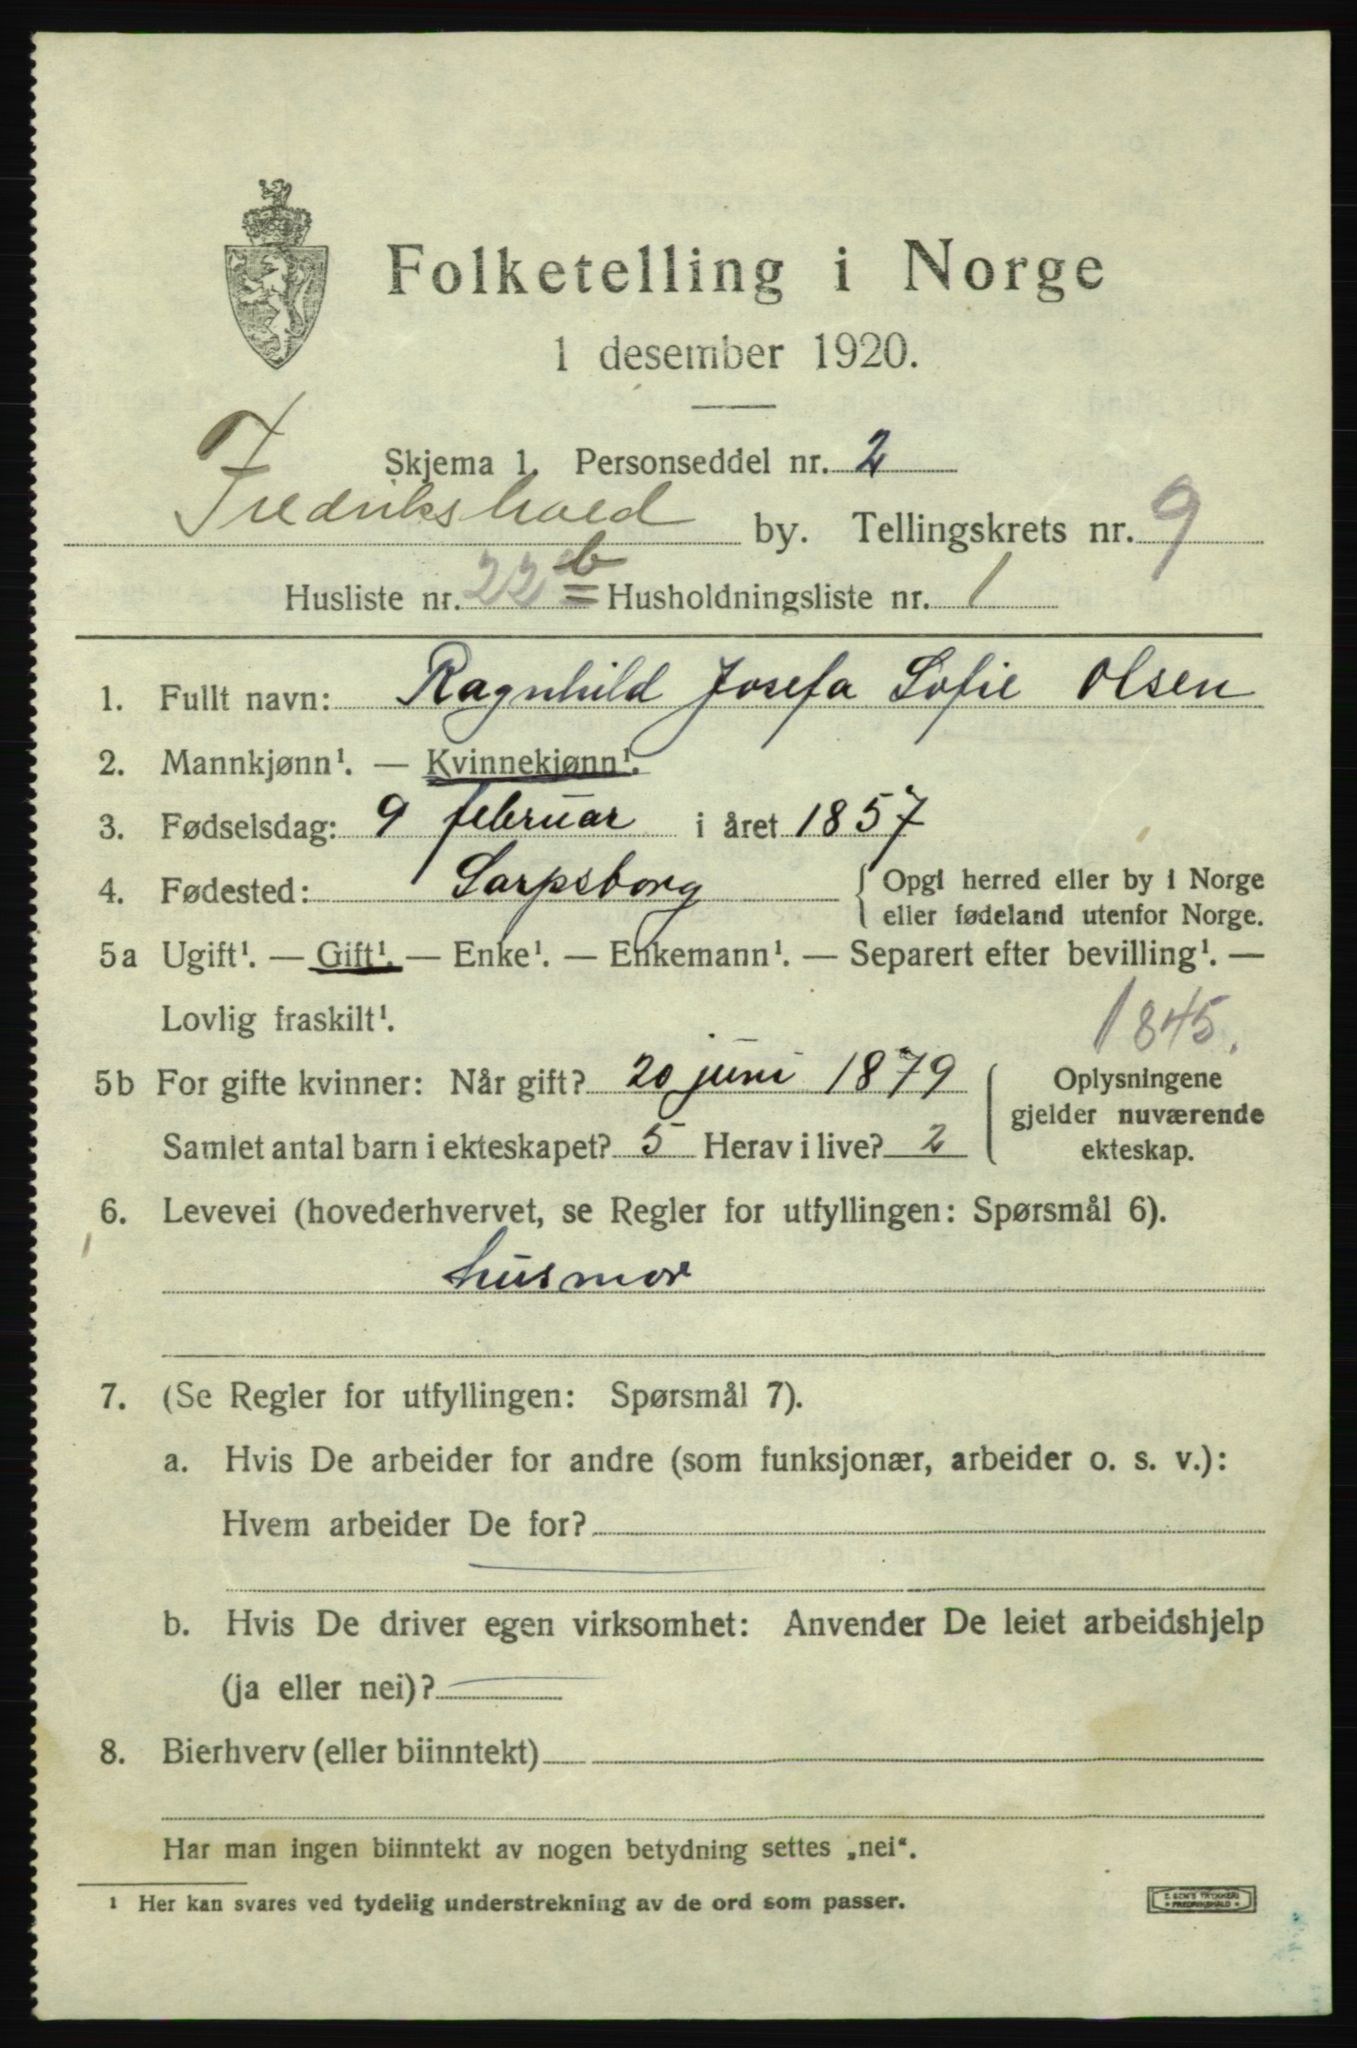 Folketelling i Norge
1 desember 1920.
Skjema 1. Personseddel nr. 2
Fredrikshald by. Tellingskrets nr. 9
Husliste nr. 22 b Husholdningsliste nr. 1
1. Fullt navn: Ragnhild Josefa Sofie Olsen
2. Mannkjønn¹. — Kvinnekjønn¹.
3. Fødselsdag: 9 februar i året 1857
4. Fødested: Sarpsborg { Opgi herred eller by i Norge
eller fødeland utenfor Norge.
5a Ugift¹. — Gift¹. — Enke¹. — Enkemann¹. — Separert efter bevilling¹. —
Lovlig fraskilt¹.
1845.
5b For gifte kvinner: Når gift? 20 juni 1879 { Oplysningene
gjelder nuværende
Samlet antal barn i ekteskapet? 5 Herav i live? 2
ekteskap.
6. Levevei (hovederhvervet, se Regler for utfyllingen: Spørsmål 6).
husmor
7. (Se Regler for utfyllingen: Spørsmål 7).
a. Hvis De arbeider for andre (som funksjonær, arbeider o. s. v.):
Hvem arbeider De for?
b. Hvis De driver egen virksomhet: Anvender De leiet arbeidshjelp
(ja eller nei)?
8. Bierhverv (eller biinntekt)
Har man ingen biinntekt av nogen betydning settes „nei“.
¹ Her kan svares ved tydelig understrekning av de ord som passer.
E. SEM'S TRYKKERI
FREDRIKSHALD